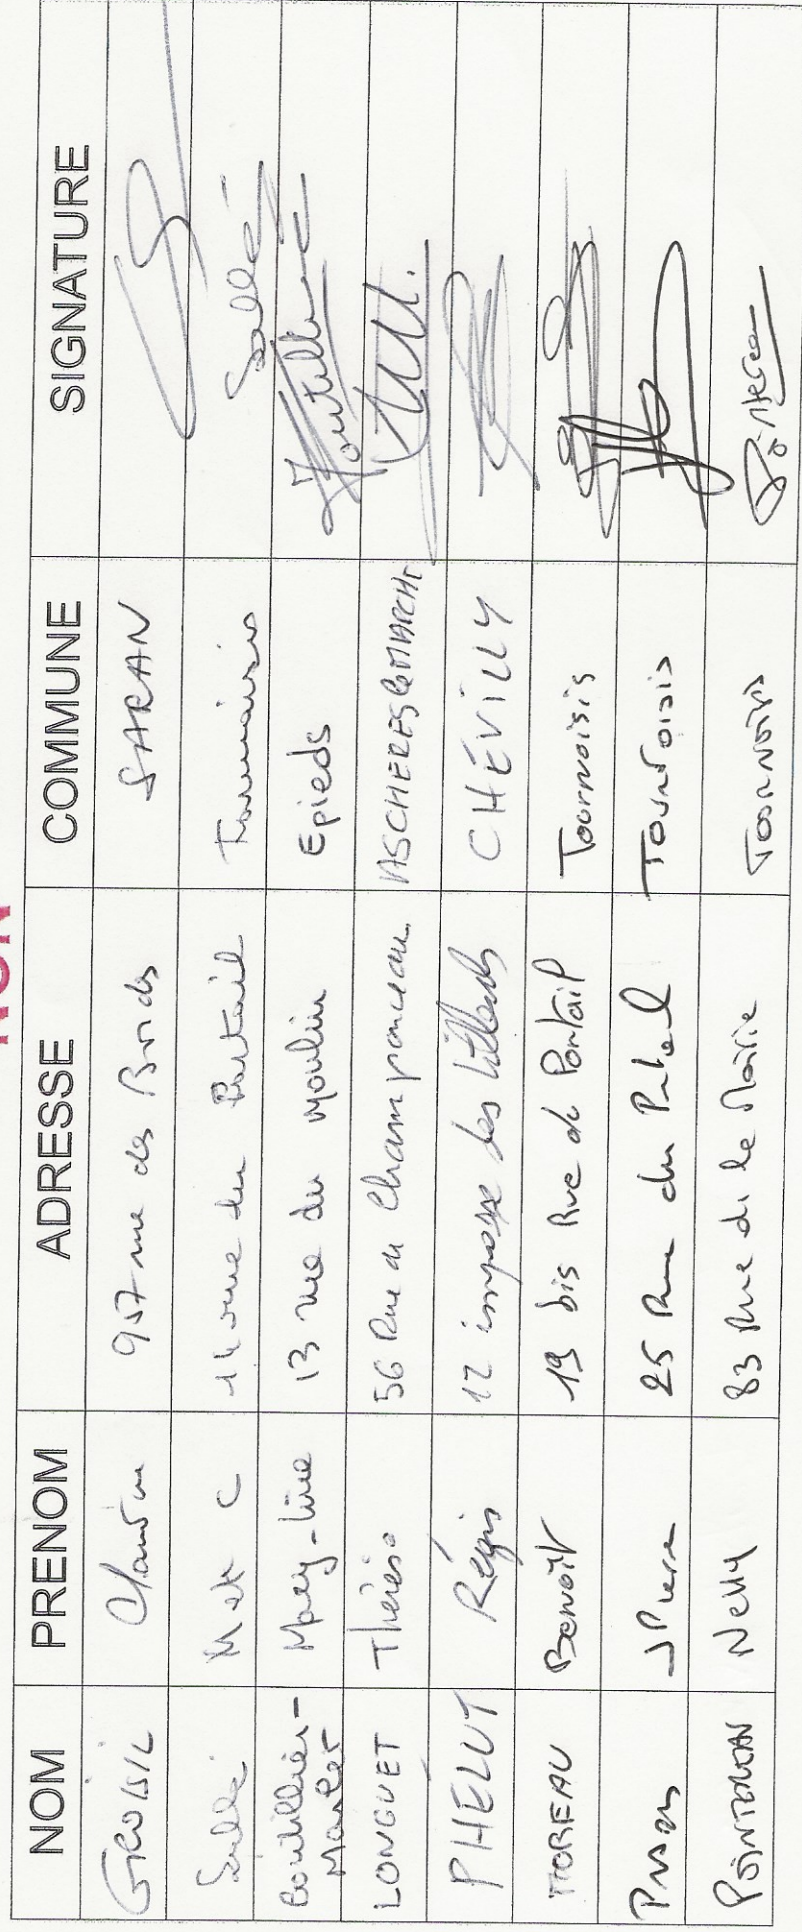 NON
NOM PRENOM ADRESSE COMMUNE SIGNATURE
GROISIL Claudine 957 rue des Bordes SARAN
Sallé rue du Portail Tournoisis Sallé
Boutillier- Mary-line 13 rue du Moulin Epieds
LONGUET Thérèse 56 Rue de Champonceau ASCHERES le MARCHE
PHELUT Régis 12 impasse des CHÉVILLY
TOREAU Benoît 19 bis Rue du Portail Tournoisis
JPierre 25 Rue du Portail Tournoisis
POINTEREAU Nelly 83 Rue de la Mairie Tournoisis